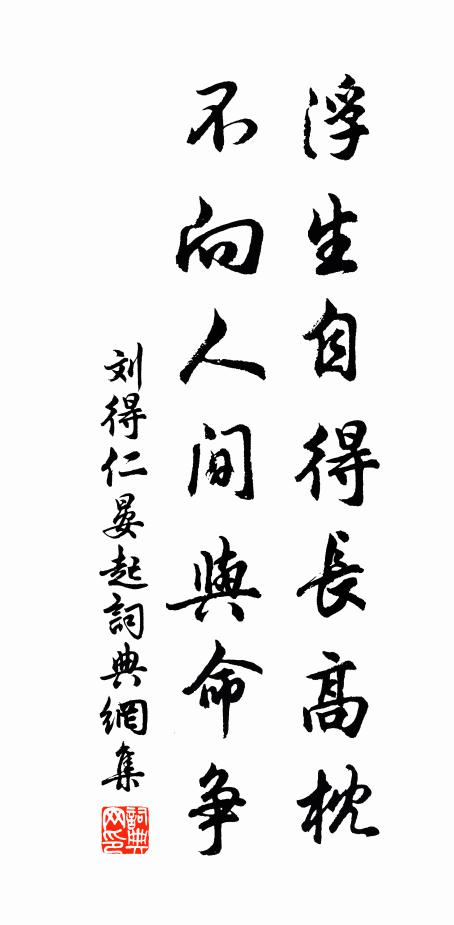 浮生自得長高枕
不向人間與命争
刘得仁晏起詞典網集
詞典网印